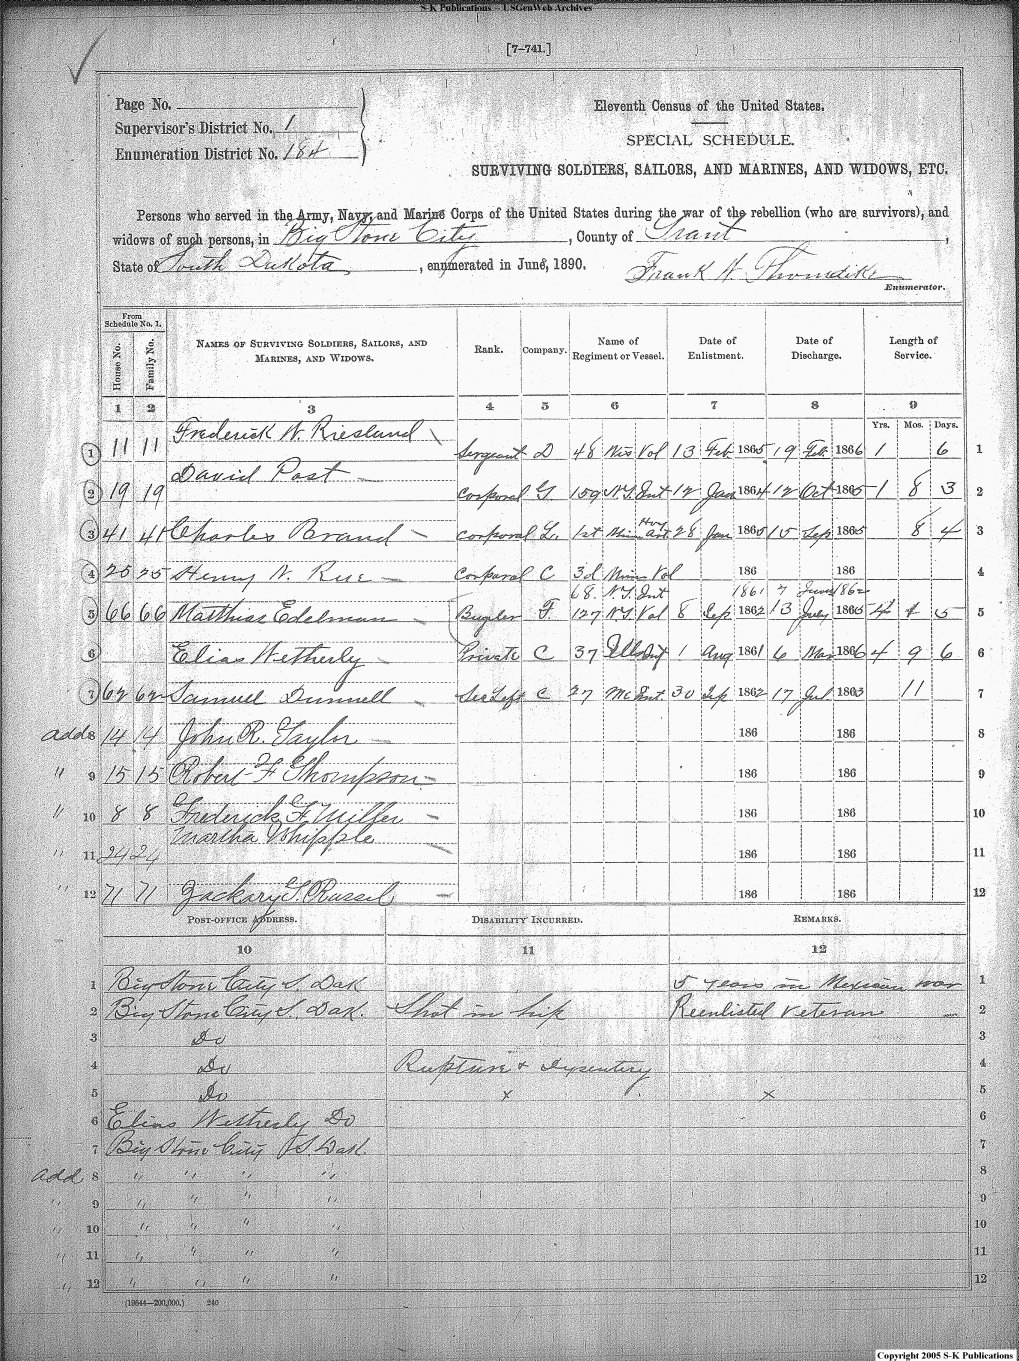 S-K Publications – USGenWeb Archives
[7–741.]
Page No.
Supervisor's District No. 1
Enumeration District No. 184
Eleventh Census of the United States.
SPECIAL SCHEDULE.
SURVIVING SOLDIERS, SAILORS, AND MARINES, AND WIDOWS, ETC.
Persons who served in the Army, Navy, and Marine Corps of the United States during the war of the rebellion (who are survivors), and
widows of such persons, in Big Stone City, County of Grant,
State of South Dakota, enumerated in June, 1890. Frank H Thorndike
Enumerator.
From Schedule No. 1.
House No. Family No. NAMES OF SURVIVING SOLDIERS, SAILORS, AND MARINES, AND WIDOWS. Rank. Company. Name of Regiment or Vessel. Date of Enlistment. Date of Discharge. Length of Service.
1 2 3 4 5 6 7 8 9
Yrs. Mos. Days.
1 11 11 Frederick W. Riesland Sergeant D 48 Wis Vol 13 Feb 1865 19 Feb 1866 1 6 1
2 19 19 David Post Corporal G 159 N.Y. Inft 12 Jan 1864 12 Oct 1865 1 8 3 2
3 41 41 Charles Brand corporal L. 1st Minn Hvy art 28 Jan 1865 15 Sep 1865 8 4 3
4 25 25 Henry N. Rue Corporal C 3d Minn Vol 186 186 4
68. N.Y. Inft 1861 7 June 1862
5 66 66 Matthias Edelman Bugler F. 127 N.Y. Vol 8 Sep 1862 13 July 1865 4 5 5
6 Elias Wetherly Private C 37 Ills Inft 1 Aug 1861 6 Mar 1866 4 9 6 6
7 62 62 Samuel Dunnell C 27 Me Inft. 30 Sep 1862 17 Jul 1863 11 7
add 8 14 14 John R. Taylor 186 186 8
" 9 15 15 Robert F Thompson 186 186 9
" 10 8 8 Frederick F. Miller 186 186 10
Martha Whipple
" 11 24 24 186 186 11
" 12 71 71 Zackary T. Russel 186 186 12
POST-OFFICE ADDRESS. DISABILITY INCURRED. REMARKS.
10 11 12
1 Big Stone City S. Dak 5 years in Mexican war 1
2 Big Stone City S. Dak. Shot in hip Reenlisted veteran 2
3 Do 3
4 Do Rupture & Dysentery 4
5 Do x x 5
6 Elias Wetherly Do 6
7 Big Stone City S. Dak. 7
add 8 " " " " 8
" 9 " " " " 9
" 10 " " " " 10
" 11 " " " " 11
" 12 " " " " 12
(19644—200,000.) 240
Copyright 2005 S-K Publications